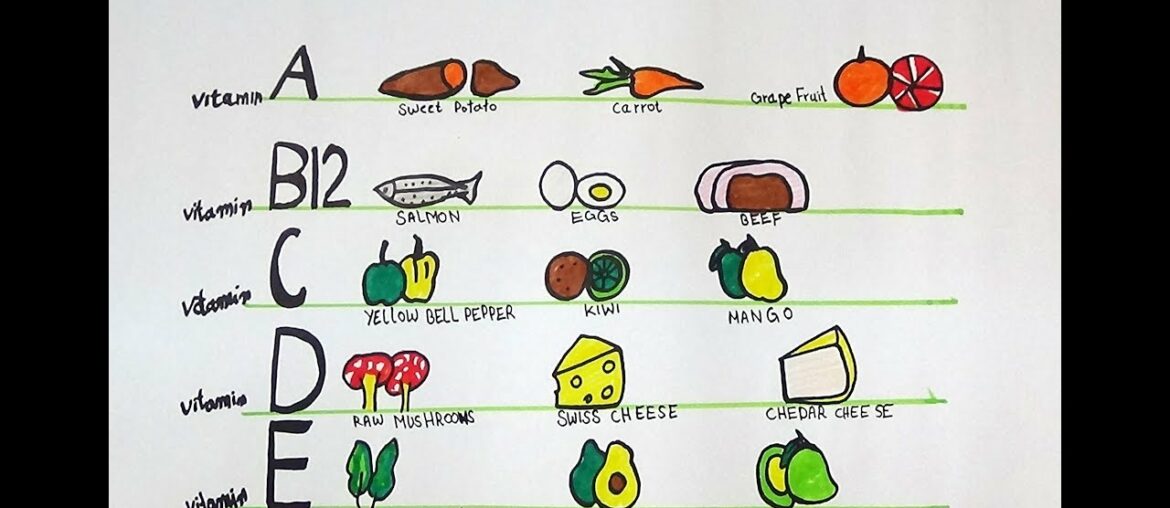 vitamin A
Sweet Potato Carrot Grape Fruit
vitamin B12
SALMON EGGS BEEF
vitamin C
YELLOW BELL PEPPER KIWI MANGO
vitamin D
RAW MUSHROOMS SWISS CHEESE CHEDAR CHEESE
vitamin E